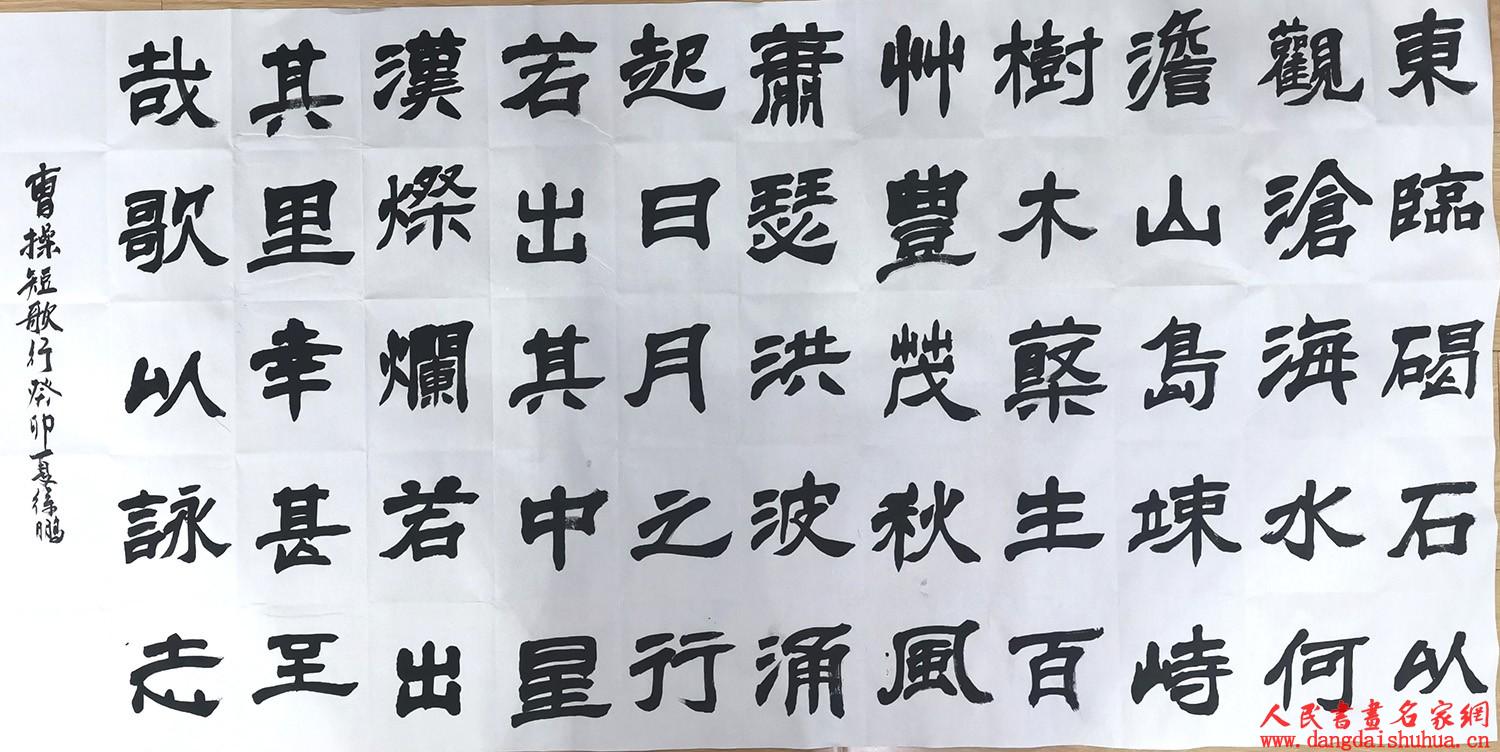 東臨碣石以
觀滄海水何
澹山島竦峙
樹木蘂生百
艸豐茂秋風
蕭瑟洪波涌
起日月之行
若出其中星
漢燦爛若出
其里幸甚至
哉歌以詠志
曹操短歌行癸卯夏徐鵬
人民書畫名家網
www.dangdaishuhua.cn